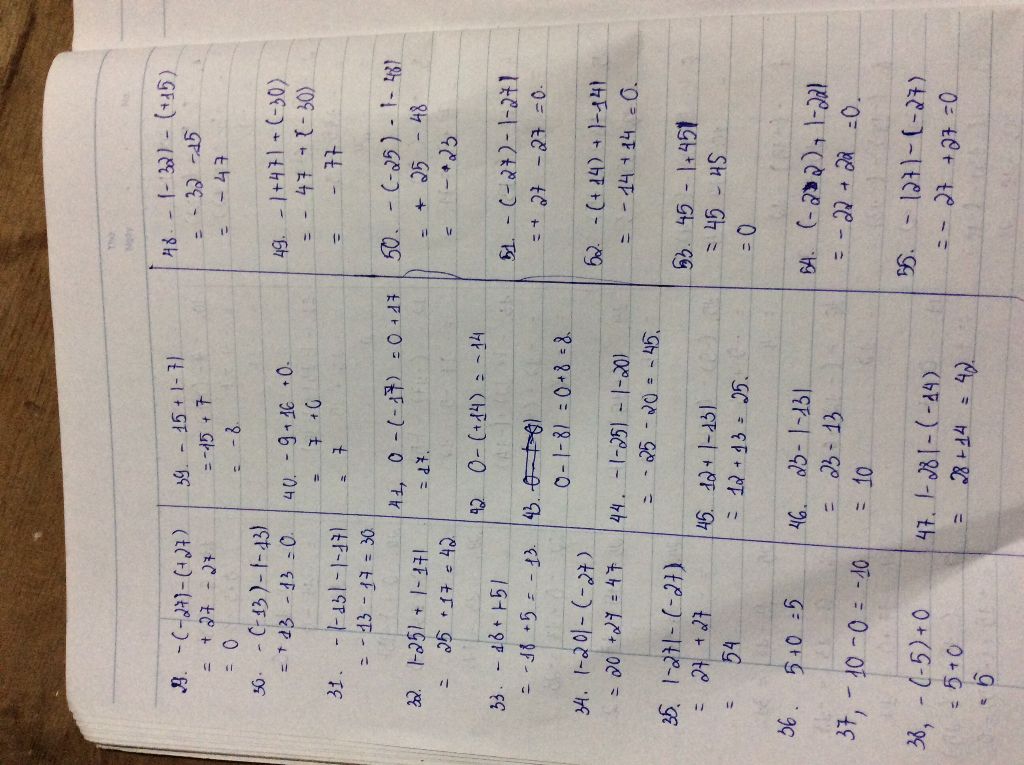 29. -(-27)-(+27)
= +27 - 27
= 0
30. -(-13)-|-13|
= +13 - 13 = 0.
31. -|-13|-|-17|
= -13 - 17 = 30.
32. |-25| + |-17|
= 25 + 17 = 42
33. -18 + |-5|
= -18 + 5 = -13.
34. |-20| - (-27)
= 20 + 27 = 47
35. |-27| - (-27)
= 27 + 27
= 54
36. 5 + 0 = 5
37, -10 - 0 = -10
38, -(-5) + 0
= 5 + 0
= 5
39. -15 + |-7|
= -15 + 7
= -8
40. -9 + 16 + 0.
= 7 + 0
= 7
41, 0 - (-17) = 0 + 17
= 17.
42 0 - (+14) = -14
43.
0 - |-8| = 0 + 8 = 8.
44. -|-25| - |-20|
= -25 - 20 = -45.
45. 12 + |-13|
= 12 + 13 = 25.
46. 23 - |-13|
= 23 - 13
= 10
47. |-28| - (-14)
= 28 + 14 = 42.
Thứ
Ngày
No.
48. -|-32| - (+15)
= -32 - 15
= -47
49. -|+47| + (-30)
= -47 + (-30)
= -77
50. -(-25) - |-48|
= + 25 - 48
= - 23
51. -(-27) - |-27|
= +27 - 27 = 0.
52. -(+14) + |-14|
= -14 + 14 = 0.
53. 45 - |+45|
= 45 - 45
= 0
54. (-22) + |-22|
= -22 + 22 = 0.
55. -|27| - (-27)
= - 27 + 27 = 0